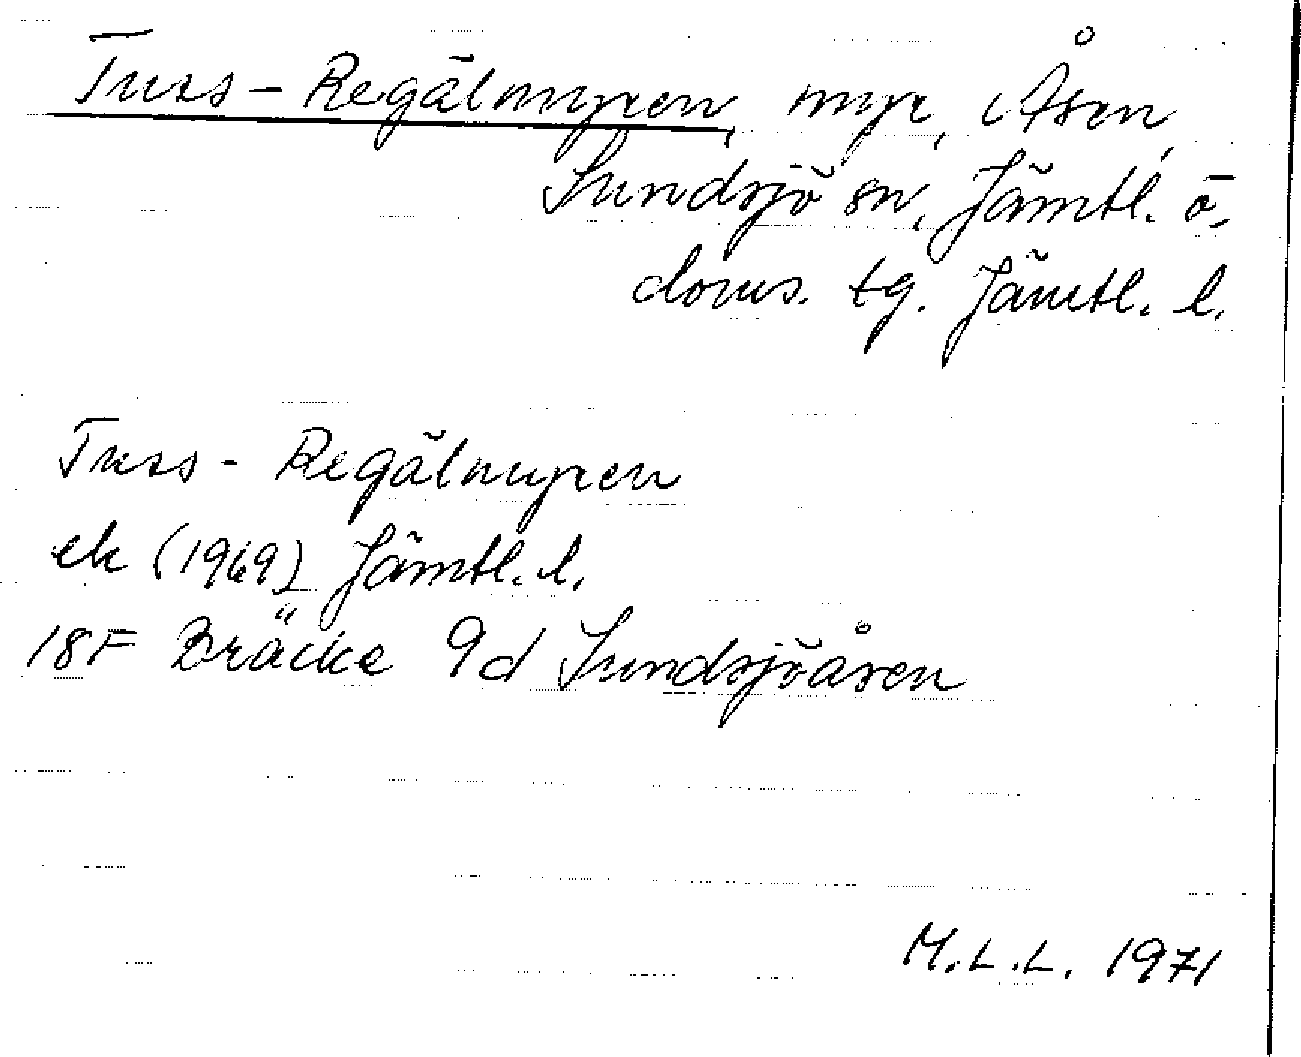 Tuss-Regälmyren, myr, Åsen,
Sundsjö sn, Jämtl. ö.
doms. tg. Jämtl. l.
Tuss-Regälmyren
ek (1969) Jämtl. l.
18F Bräcke 9d Sundsjöåsen
M.L.L. 1971